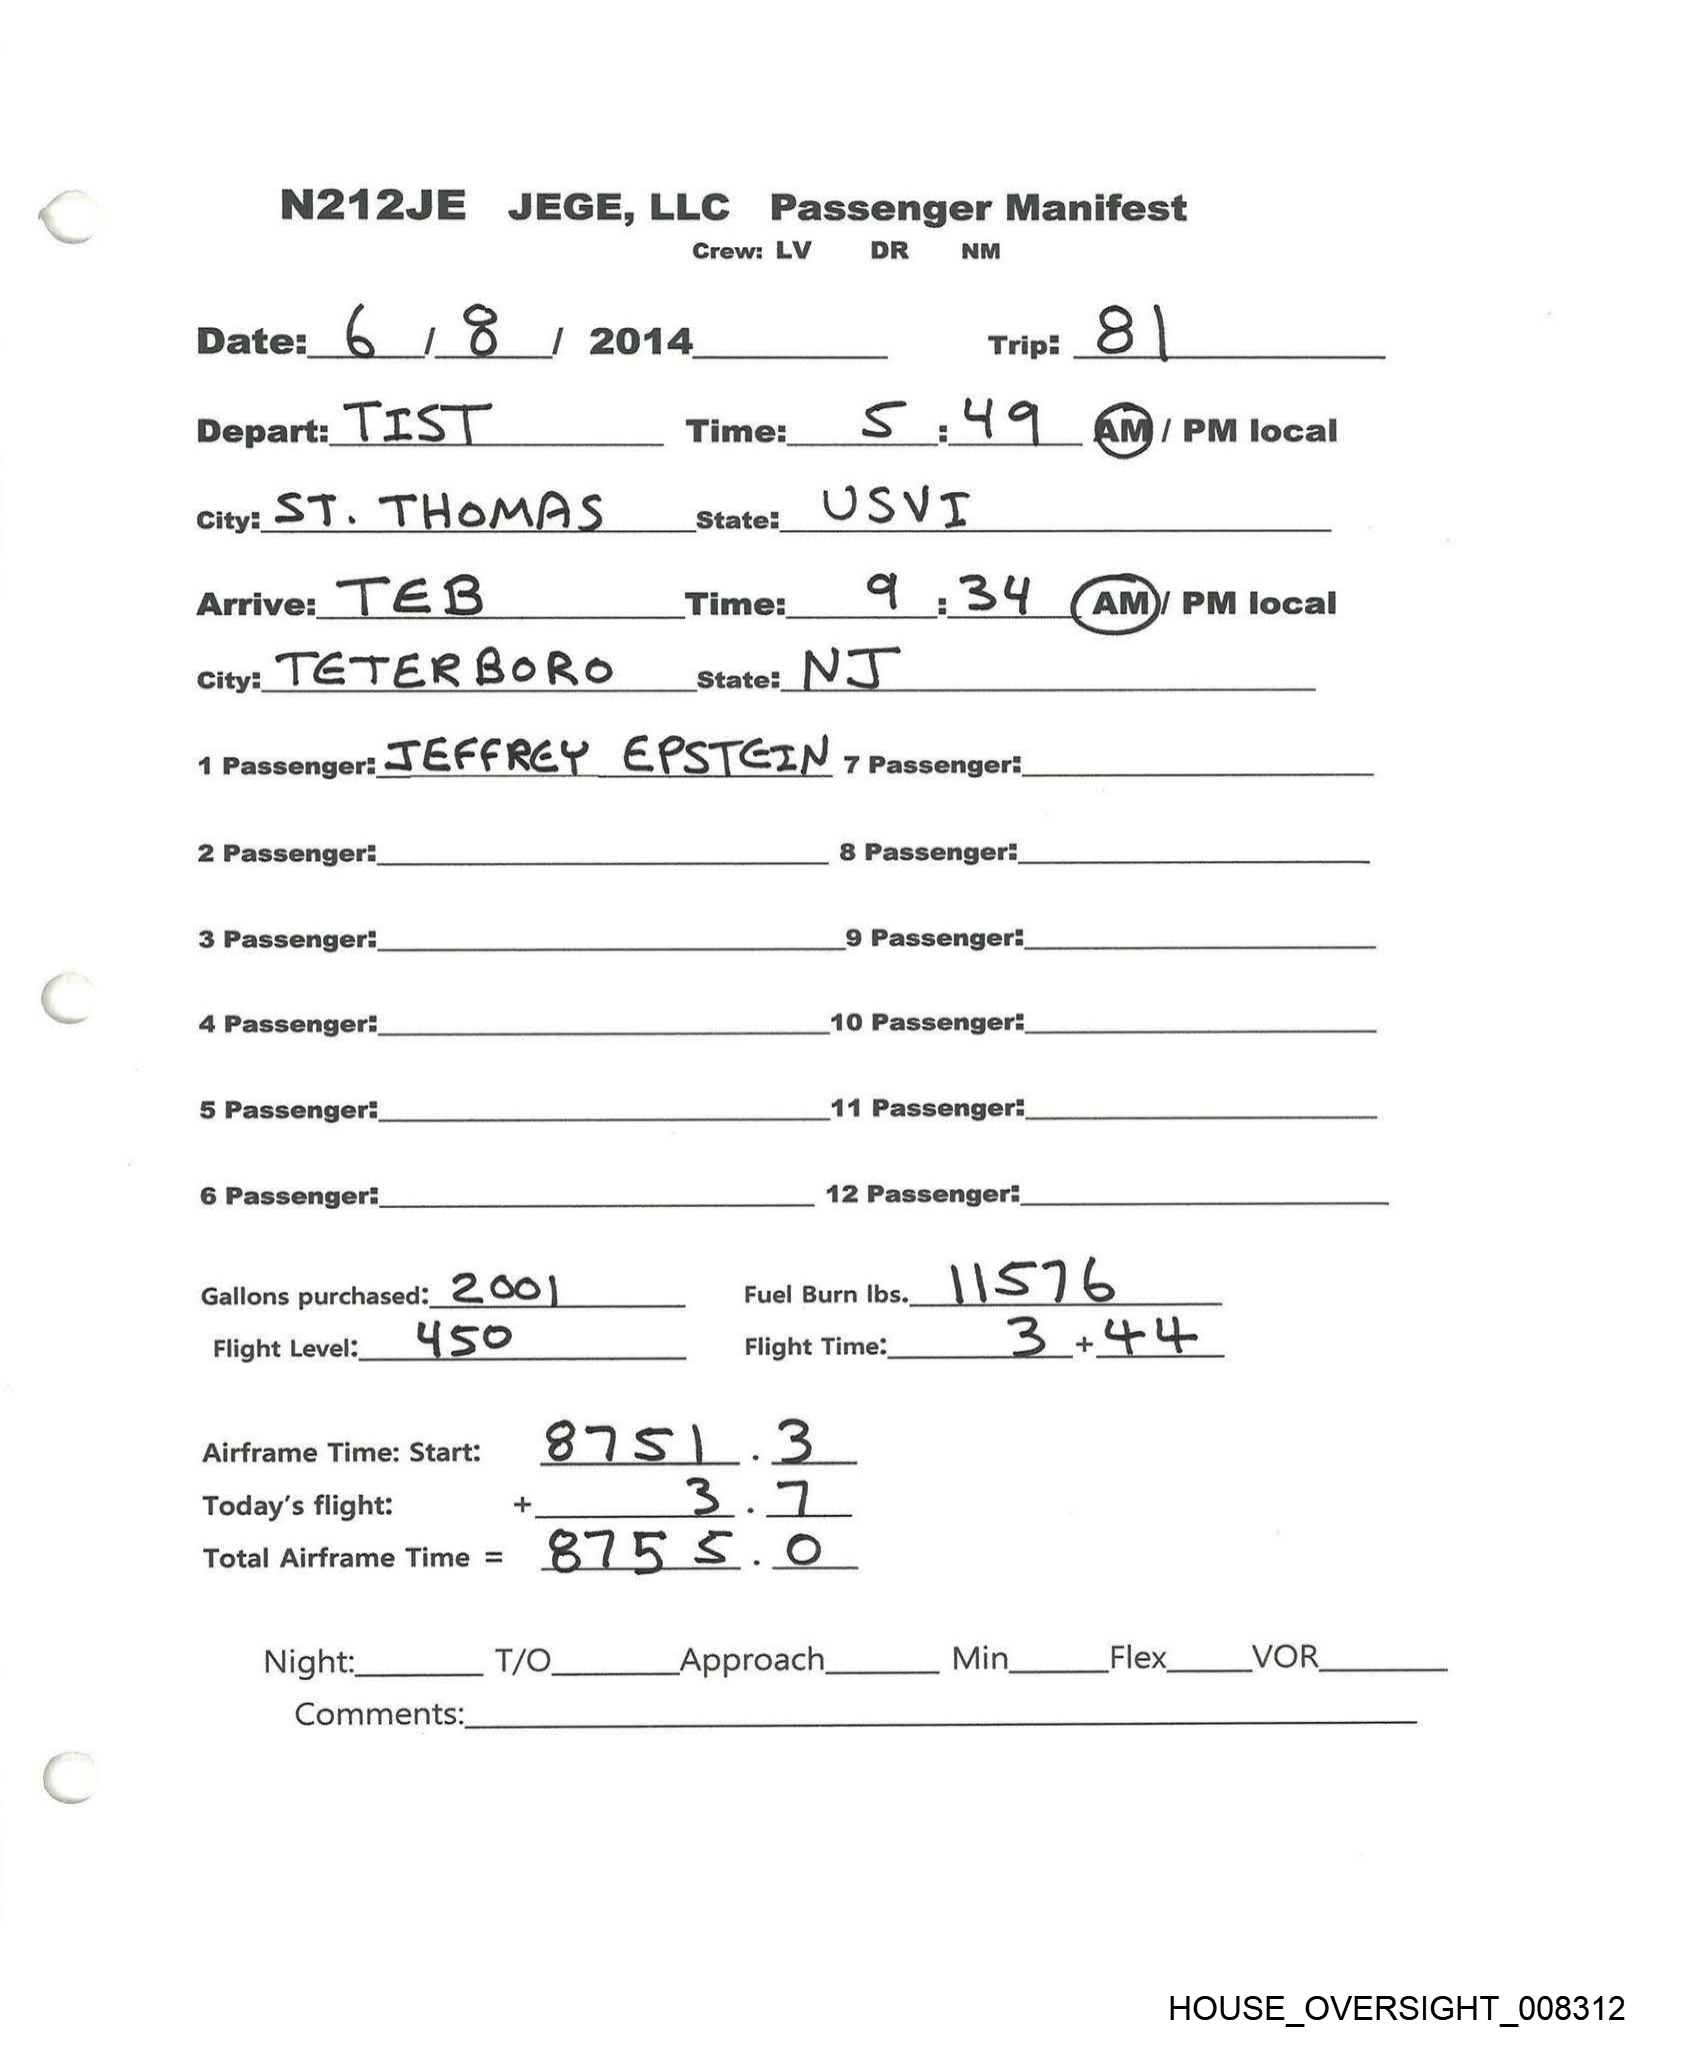 N212JE JEGE, LLC Passenger Manifest
Crew: LV DR NM
Date: 6 / 8 / 2014 Trip: 81
Depart: TIST Time: 5 : 49 AM / PM local
City: ST. THOMAS State: USVI
Arrive: TEB Time: 9 : 34 AM / PM local
City: TETERBORO State: NJ
1 Passenger: JEFFREY EPSTEIN 7 Passenger:
2 Passenger: 8 Passenger:
3 Passenger: 9 Passenger:
4 Passenger: 10 Passenger:
5 Passenger: 11 Passenger:
6 Passenger: 12 Passenger:
Gallons purchased: 2001 Fuel Burn lbs. 11576
Flight Level: 450 Flight Time: 3 + 44
Airframe Time: Start: 8751 . 3
Today's flight: + 3 . 7
Total Airframe Time = 8755 . 0
Night: T/O Approach Min Flex VOR
Comments:
HOUSE_OVERSIGHT_008312